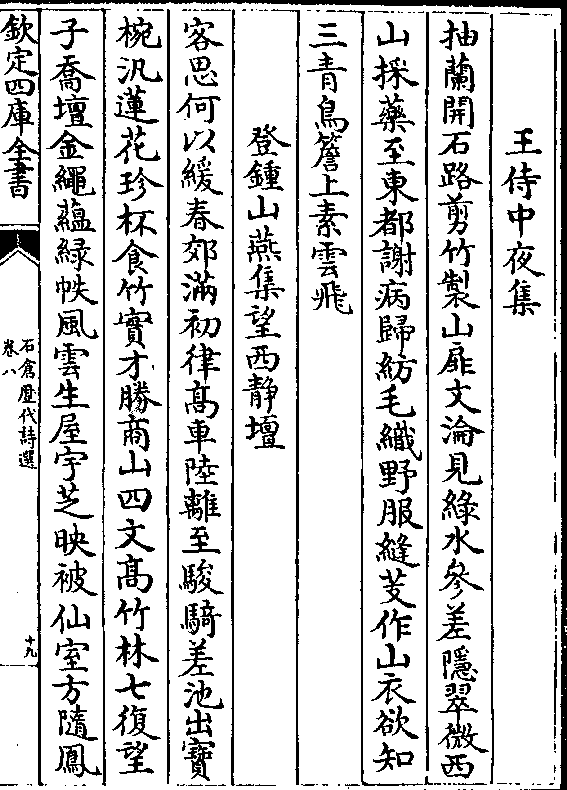 王侍中夜集
抽蘭開石路剪竹製山扉文淪見綠水參差隱翠微西
山採藥至東都謝病歸紡毛織野服縫芰作山衣欲知
三青鳥簷上素雲飛
登鍾山燕集望西静壇
客思何以緩春郊滿初律髙車陸離至駿騎差池出寶
椀汎蓮花珍杯食竹實才勝商山四文髙竹林七復望
子喬壇金繩藴緑帙風雲生屋宇芝映被仙室方隨鳳
欽定四庫全書
石倉歴代詩選
卷八
十九